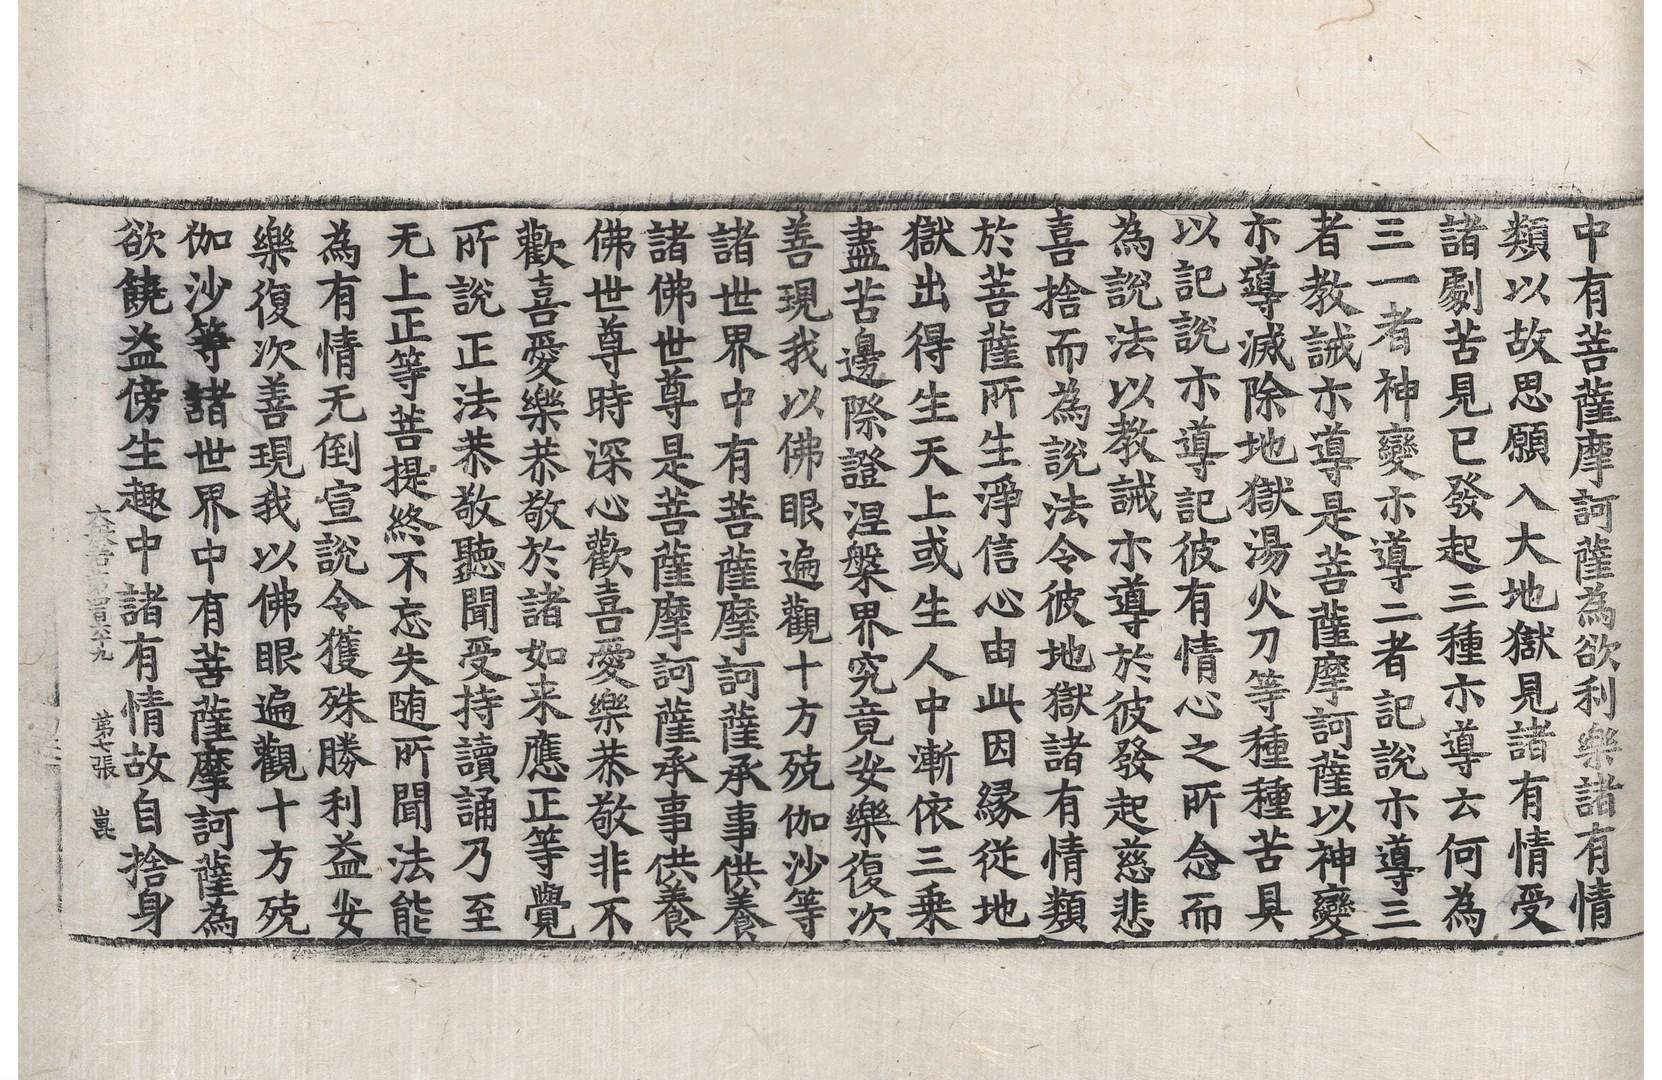 中有菩薩摩訶薩為欲利樂諸有情
類以故思願入大地獄見諸有情受
諸劇苦見已發起三種示導云何為
三一者神變示導二者記說示導三
者教誡示導是菩薩摩訶薩以神變
示導滅除地獄湯火刀等種種苦具
以記說示導記彼有情心之所念而
為說法以教誡示導於彼發起慈悲
喜捨而為說法令彼地獄諸有情類
於菩薩所生淨信心由此因緣從地
獄出得生天上或生人中漸依三乘
盡苦邊際證涅槃界究竟安樂復次
善現我以佛眼遍觀十方殑伽沙等
諸世界中有菩薩摩訶薩承事供養
諸佛世尊是菩薩摩訶薩承事供養
佛世尊時深心歡喜愛樂恭敬非不
歡喜愛樂恭敬於諸如来應正等覺
所說正法恭敬聽聞受持讀誦乃至
无上正等菩提終不忘失随所聞法能
為有情无倒宣說令獲殊勝利益安
樂復次善現我以佛眼遍觀十方殑
伽沙等諸世界中有菩薩摩訶薩為
欲饒益傍生趣中諸有情故自捨身
大般若第四百六十九 第七張 崑